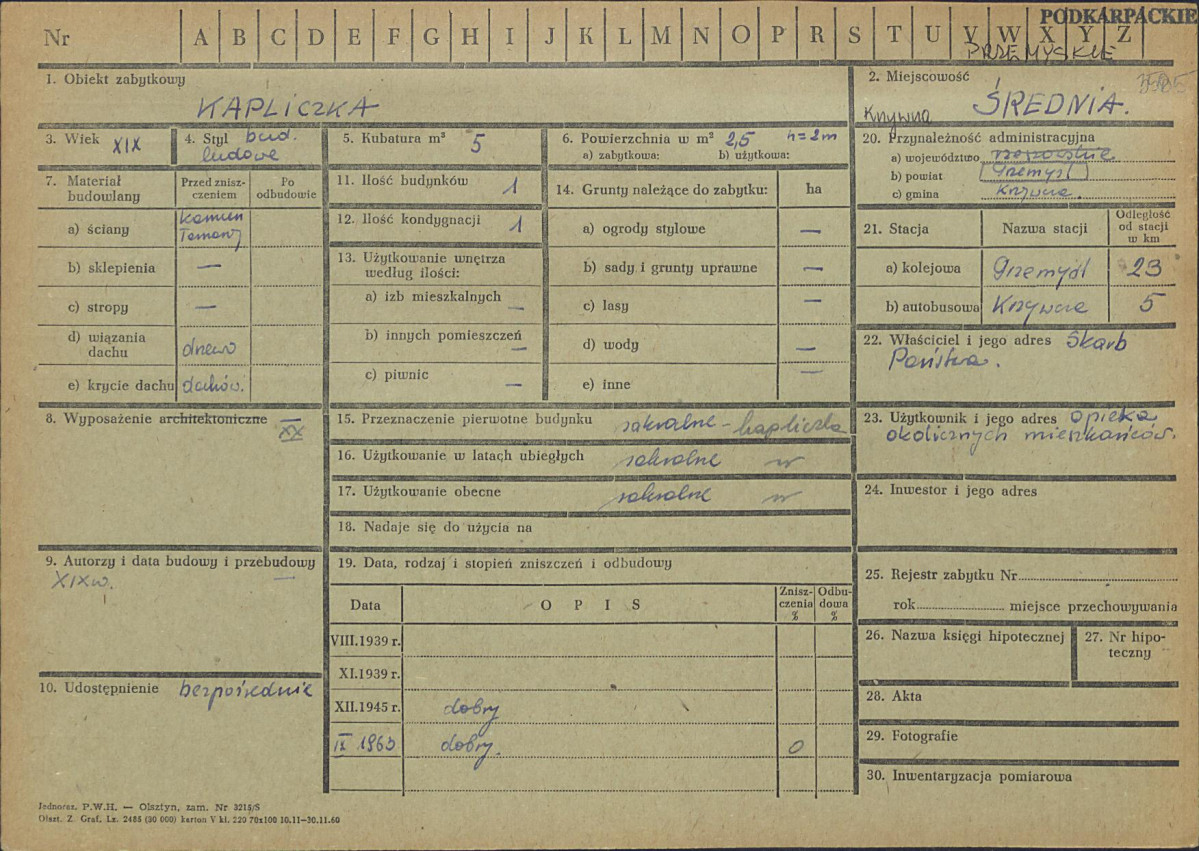 PODKARPACKIE
Nr A B C D E F G H I J K L M N O P R S T U V W X Y Z
PRZEMYSKIE
1. Obiekt zabytkowy
KAPLICZKA
2. Miejscowość
Krzywcza ŚREDNIA.
3. Wiek XIX
4. Styl bud.
ludowe
5. Kubatura m³ 5
6. Powierzchnia w m² 2,5 h=2m
a) zabytkowa: b) użytkowa:
20. Przynależność administracyjna
a) województwo rzeszowskie
b) powiat Przemyśl
c) gmina Krzywcza.
7. Materiał budowlany
Przed zniszczeniem
Po odbudowie
a) ściany kamień łamany
b) sklepienia —
c) stropy —
d) wiązania dachu drewno
e) krycie dachu dachów.
11. Ilość budynków 1
12. Ilość kondygnacji 1
13. Użytkowanie wnętrza
według ilości:
a) izb mieszkalnych —
b) innych pomieszczeń —
c) piwnic —
14. Grunty należące do zabytku: ha
a) ogrody stylowe —
b) sady i grunty uprawne —
c) lasy —
d) wody —
e) inne —
21. Stacja Nazwa stacji Odległość od stacji w km
a) kolejowa Przemyśl 23
b) autobusowa Krzywcza 5
22. Właściciel i jego adres Skarb
Państwa.
8. Wyposażenie architektoniczne XX
15. Przeznaczenie pierwotne budynku sakralne - kapliczka
16. Użytkowanie w latach ubiegłych sakralne w
17. Użytkowanie obecne sakralne w
18. Nadaje się do użycia na
23. Użytkownik i jego adres opieka
okolicznych mieszkańców.
24. Inwestor i jego adres
9. Autorzy i data budowy i przebudowy
XIXw. —
10. Udostępnienie bezpośrednie
19. Data, rodzaj i stopień zniszczeń i odbudowy
Data OPIS Zniszczenia % Odbudowa %
VIII.1939 r.
XI.1939 r.
XII.1945 r. dobry
IX 1963 dobry. 0
25. Rejestr zabytku Nr
rok miejsce przechowywania
26. Nazwa księgi hipotecznej
27. Nr hipoteczny
28. Akta
29. Fotografie
30. Inwentaryzacja pomiarowa
Jednoraz. P.W.H. — Olsztyn, zam. Nr 3215/S
Olszt. Z. Graf. Lz. 2486 (30 000) karton V kl. 220 70x100 10.11—30.11.60